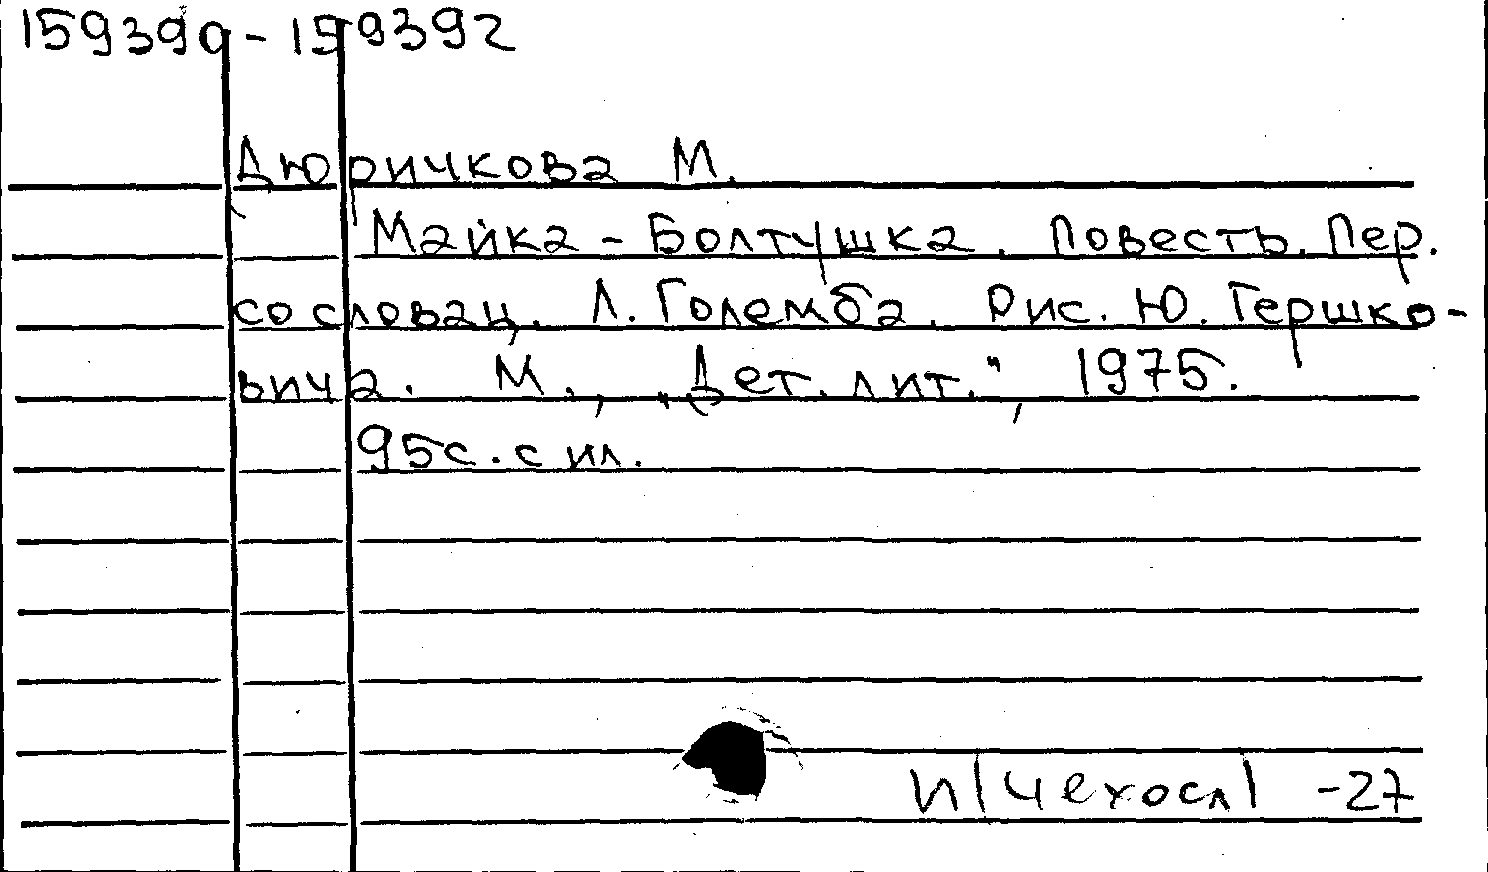 159390-159392
Дюричкова М.
Майка-Болтушка. Повесть. Пер.
со словац. Л. Големба. Рис. Ю. Гершко-
вича. М., „Дет. лит.", 1975.
95с. с ил.
И(Чехосл) -27